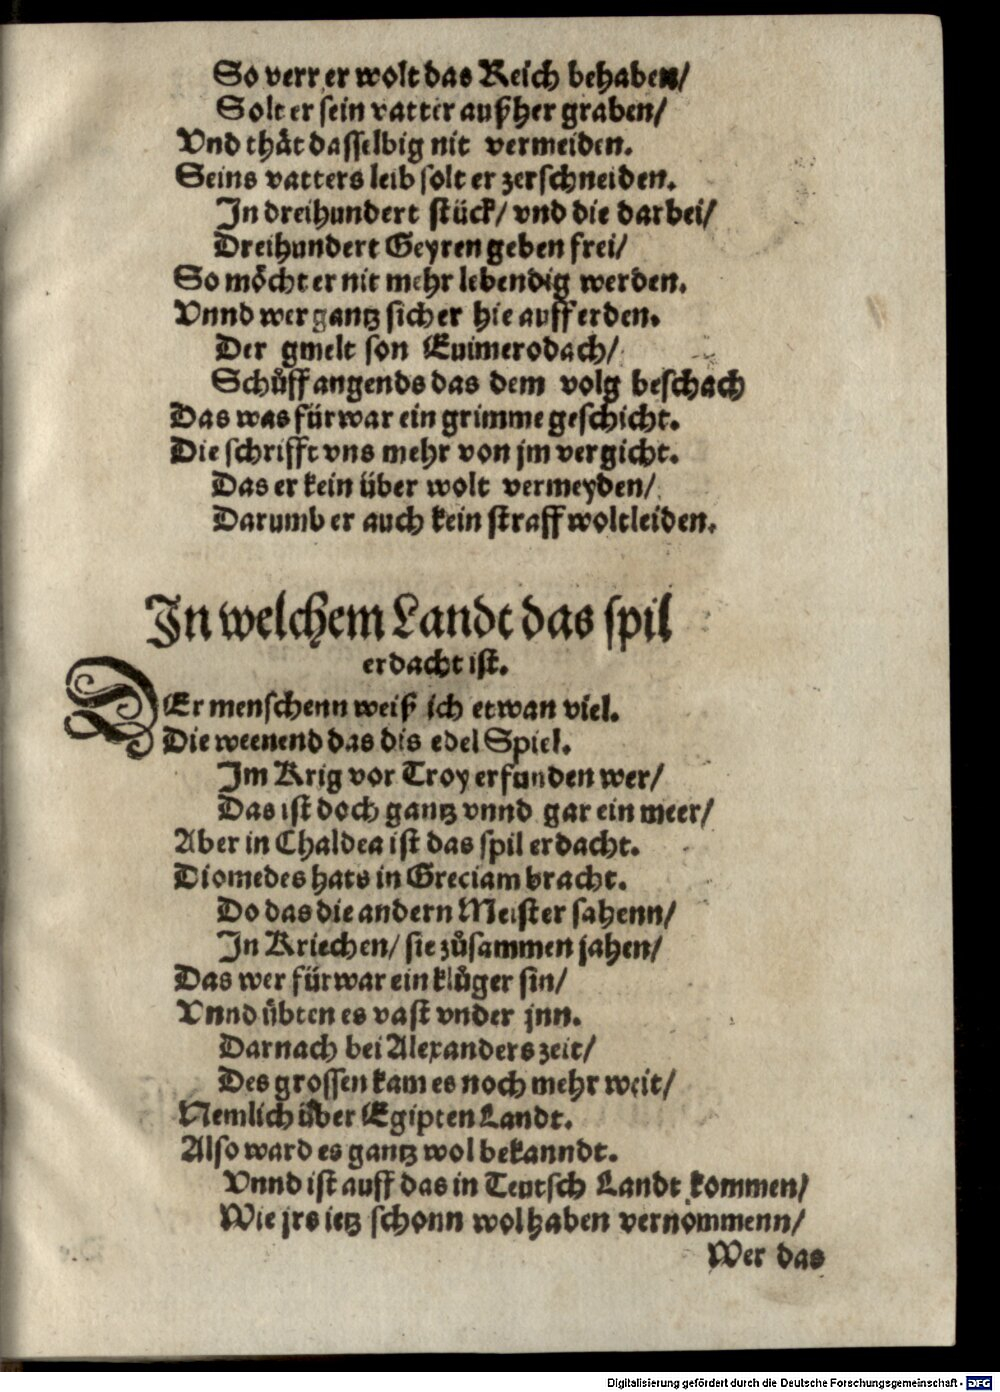 So verr er wolt das Reich behaben/
Solt er sein vatter außher graben/
Vnd thåt dasselbig nit vermeiden.
Seins vatters leib solt er zerschneiden.
In dreihundert stück/ vnd die darbei/
Dreihundert Geyren geben frei/
So mőcht er nit mehr lebendig werden.
Vnnd wer gantz sicher hie auff erden.
Der gmelt son Euimerodach/
Schůff angends das dem volg beschach
Das was fürwar ein grimme geschicht.
Die schrifft vns mehr von jm vergicht.
Das er kein über wolt vermeyden/
Darumb er auch kein straff wolt leiden.
In welchem Landt das spil
erdacht ist.
DEr menschenn weiß ich etwan viel.
Die weenend das dis edel Spiel.
Im Krig vor Troy erfunden wer/
Das ist doch gantz vnnd gar ein meer/
Aber in Chaldea ist das spil erdacht.
Diomedes hats in Greciam bracht.
Do das die andern Meister sahenn/
In Kriechen/ sie zůsammen jahen/
Das wer fürwar ein klůger sin/
Vnnd übten es vast vnder jnn.
Darnach bei Alexanders zeit/
Des grossen kam es noch mehr weit/
Nemlich über Egipten Landt.
Also ward es gantz wol bekanndt.
Vnnd ist auff das in Teutsch Landt kommen/
Wie jrs ietz schonn wol haben vernommenn/
Wer das
Digitalisierung gefördert durch die Deutsche Forschungsgemeinschaft - DFG